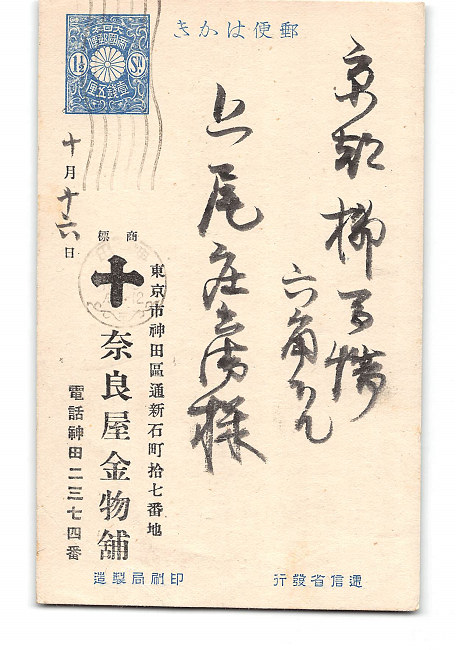 郵便はかき
大日本
帝國郵便
1½ Sn
壹錢五厘
京都柳馬場
六角
尾庄 様
十月十六日
商標
東京市神田區通新石町拾七番地
奈良屋金物舖
電話神田二三七四番
遞信省發行
印刷局製造